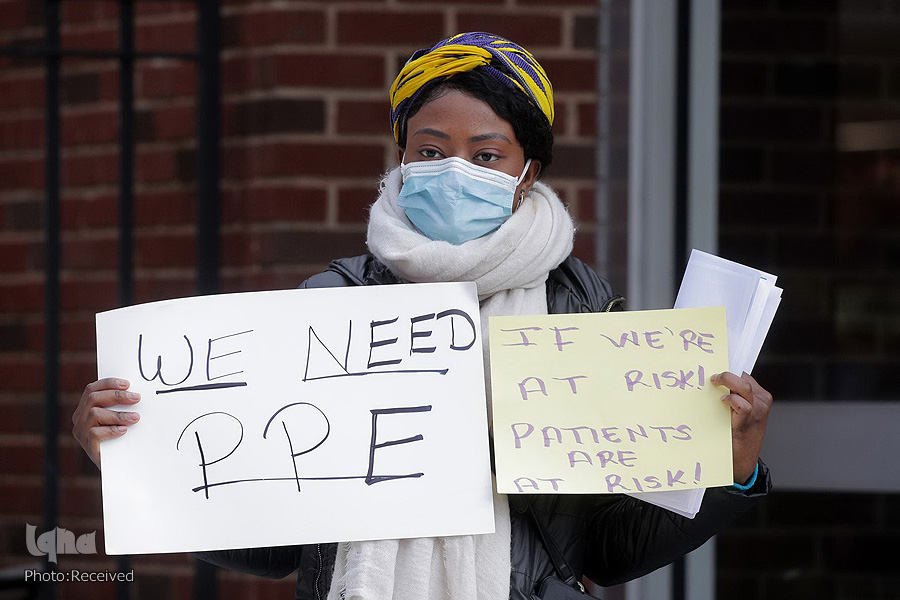 WE NEED
PPE
IF WE'RE
AT RISK!
PATIENTS
ARE
AT RISK!
iqna
Photo:Received